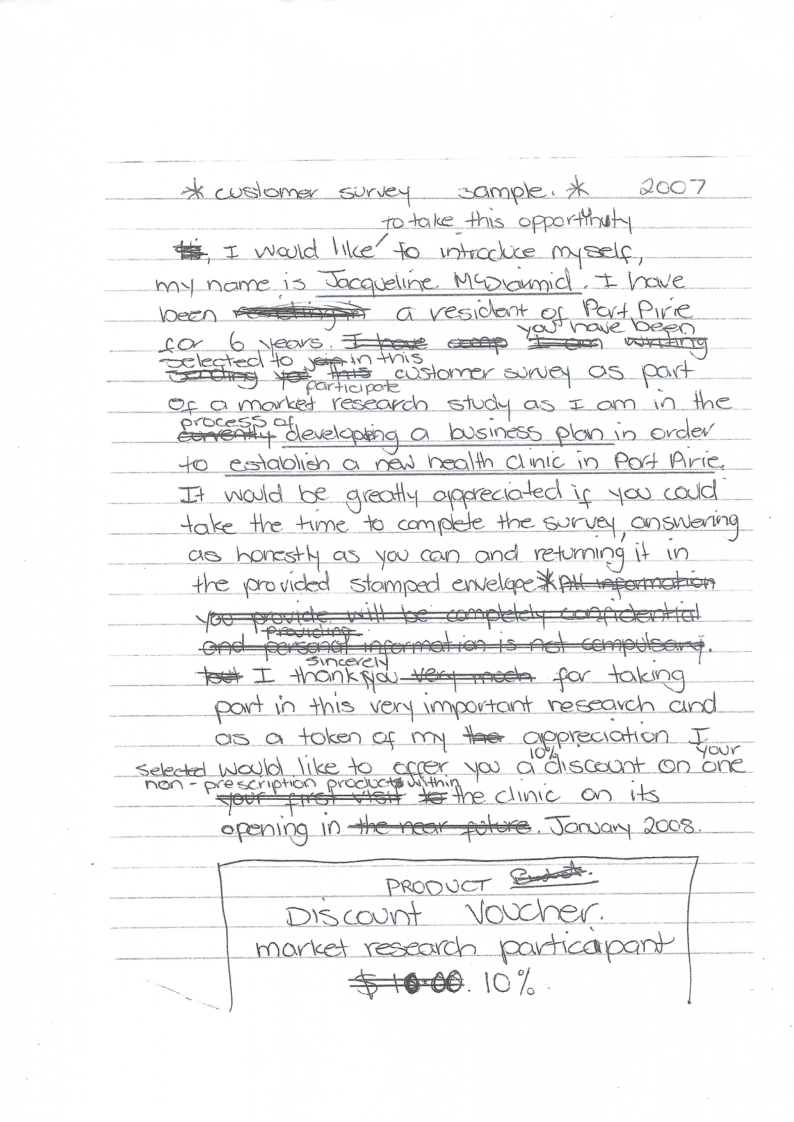 * customer survey sample. * 2007
to take this opportunity
, I would like to introduce myself,
my name is Jacqueline McDiarmid. I have
been a resident of Port Pirie
you have been
for 6 years. I have comp I am writing
selected to join in this
sending you this customer survey as part
participate
of a market research study as I am in the
process of
currently developing a business plan in order
to establish a new health clinic in Port Pirie.
It would be greatly appreciated if you could
take the time to complete the survey, answering
as honestly as you can and returning it in
the provided stamped envelope * All information
you provide will be completely confidential
providing
and personal information is not compulsary.
sincerely
but I thankyou very much for taking
part in this very important research and
as a token of my the appreciation I
10% your
selected would like to offer you a discount on one
non-prescription products within
your first visit to the clinic on its
opening in the near future. January 2008.
PRODUCT
Discount Voucher.
market research participant
$10.00. 10%